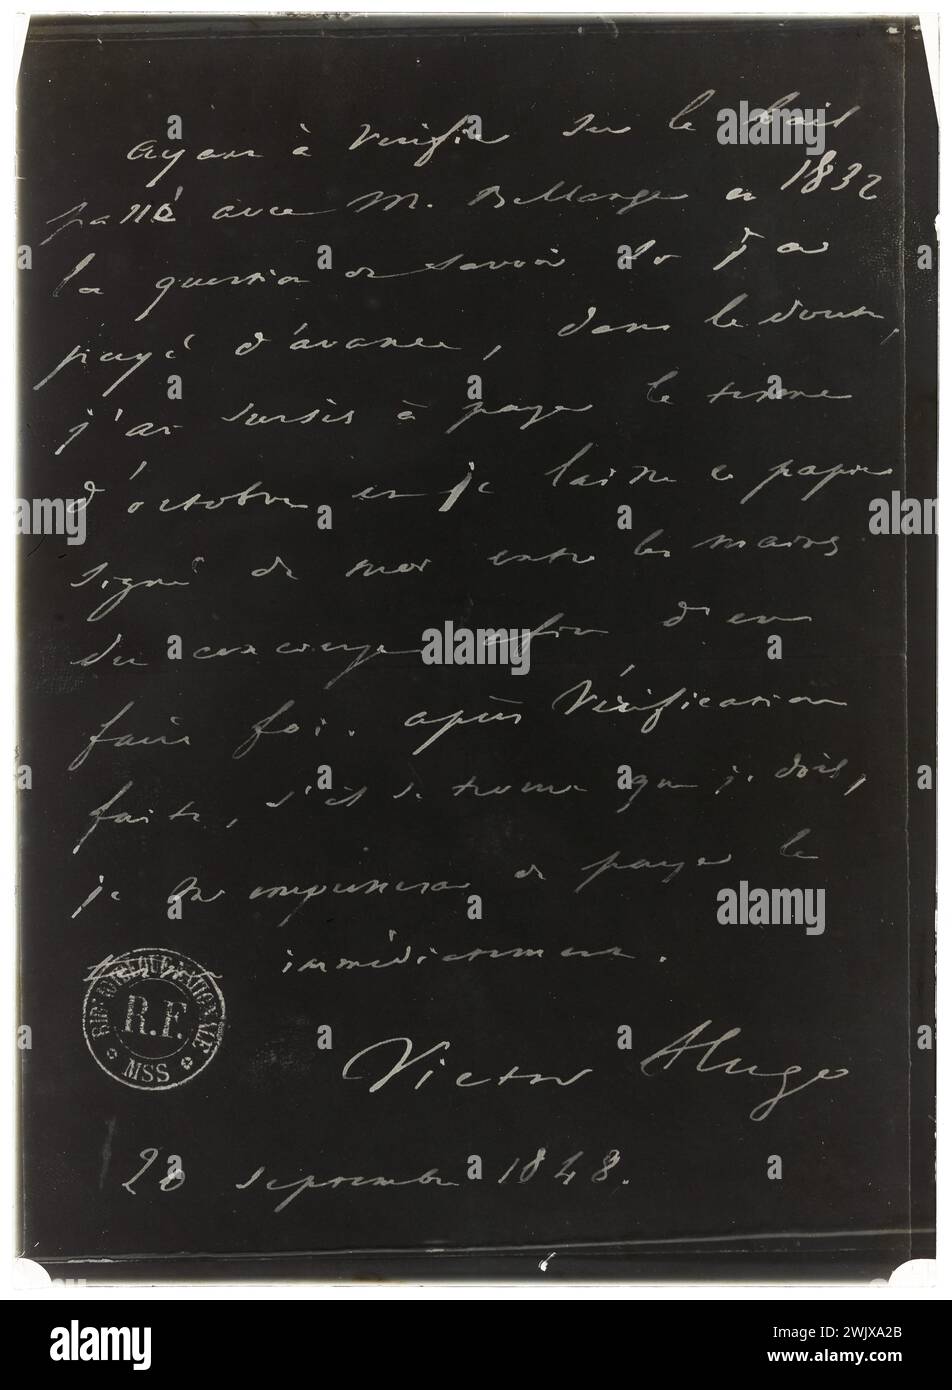 Ayant à vérifier sur le bail
passé avec M. Bellanger en 1832
la question de savoir si j'ai
payé d'avance, dans le doute,
j'ai sursis à payer le terme
d'octobre et je laisse ce papier
signé de moi entre les mains
du concierge afin d'en
faire foi. après vérification
faite, s'il se trouve que je dois,
je m'empresserai de payer le
immédiatement.
BIBLIOTHEQUE NATIONALE
R.F.
MSS
Victor Hugo
20 septembre 1848.
alamy
Image ID: 2WJXA2B
www.alamy.com